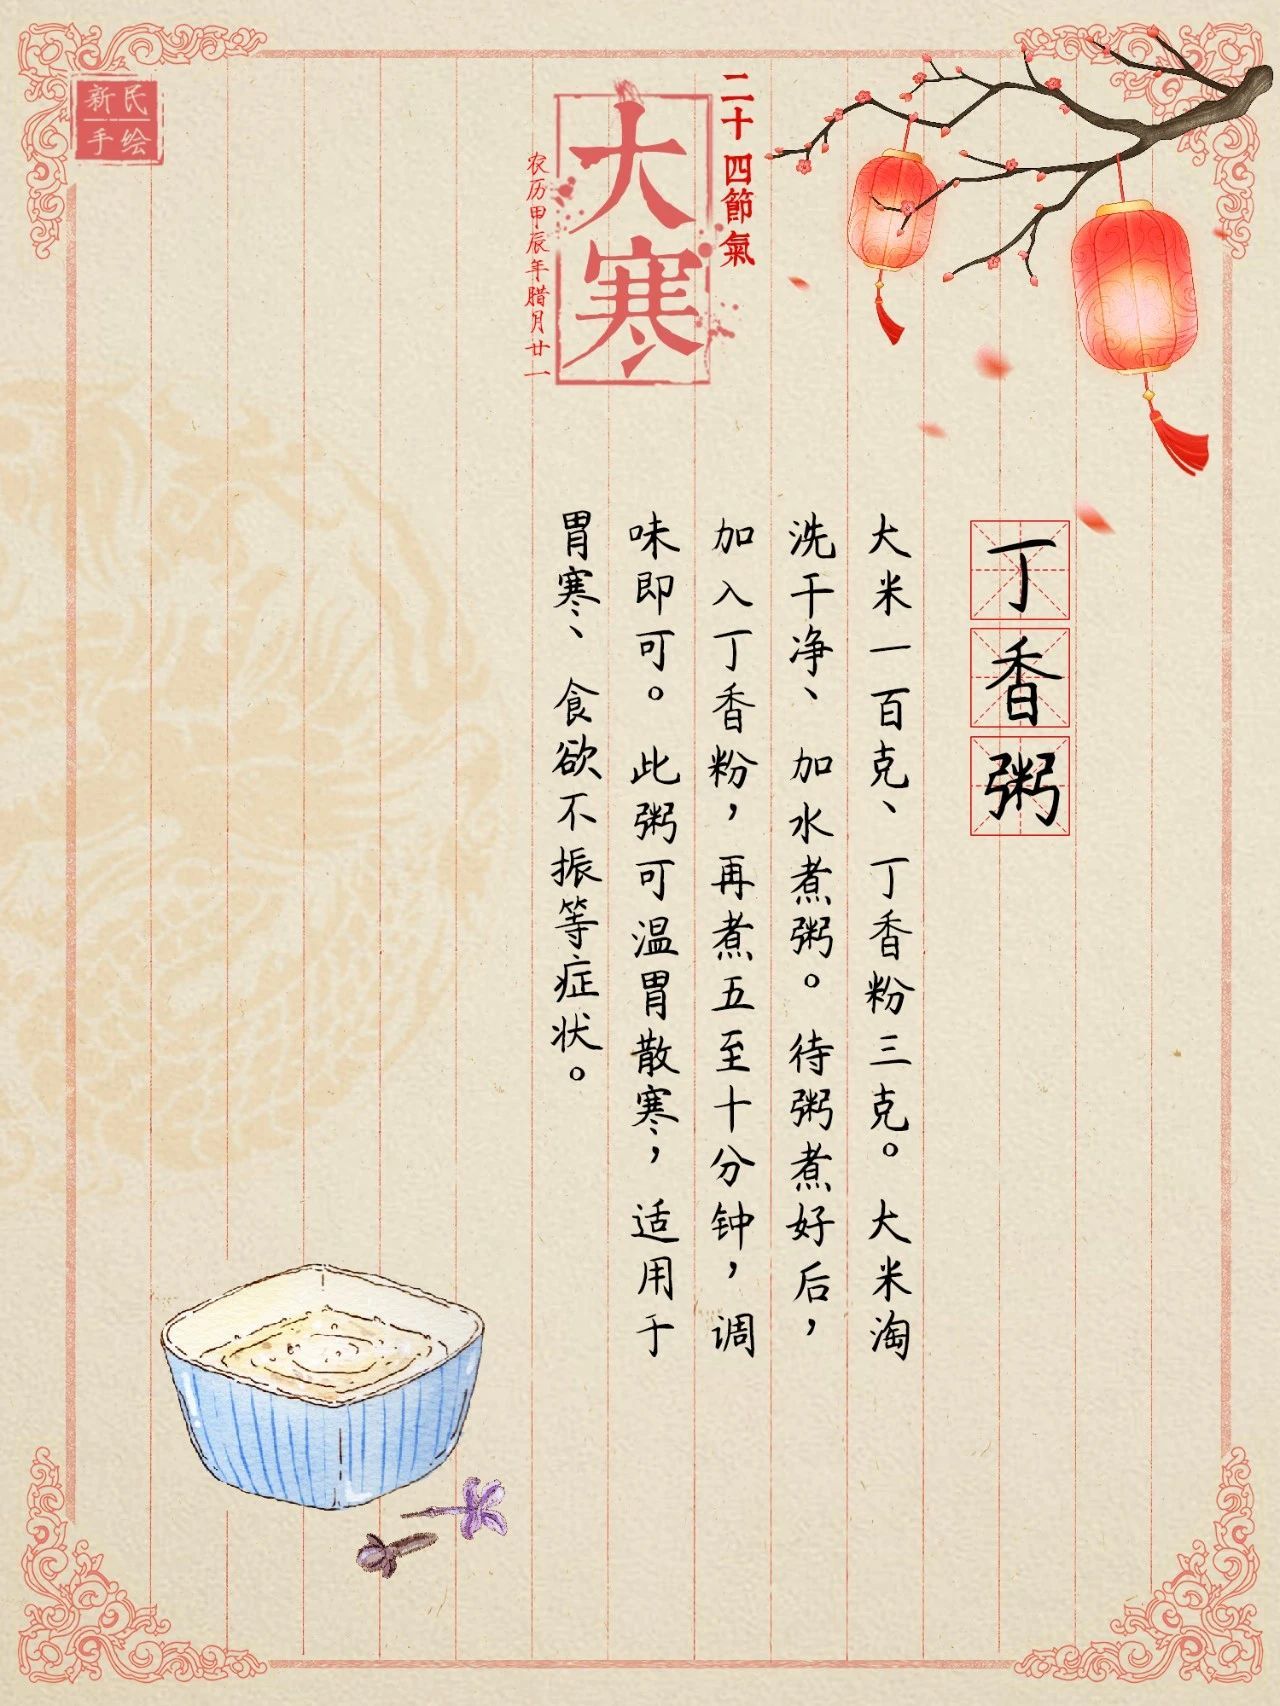 新民
手绘
二十四節氣
大寒
农历甲辰年腊月廿一
丁香粥
大米一百克、丁香粉三克。大米淘
洗干净、加水煮粥。待粥煮好后，
加入丁香粉，再煮五至十分钟，调
味即可。此粥可温胃散寒，适用于
胃寒、食欲不振等症状。